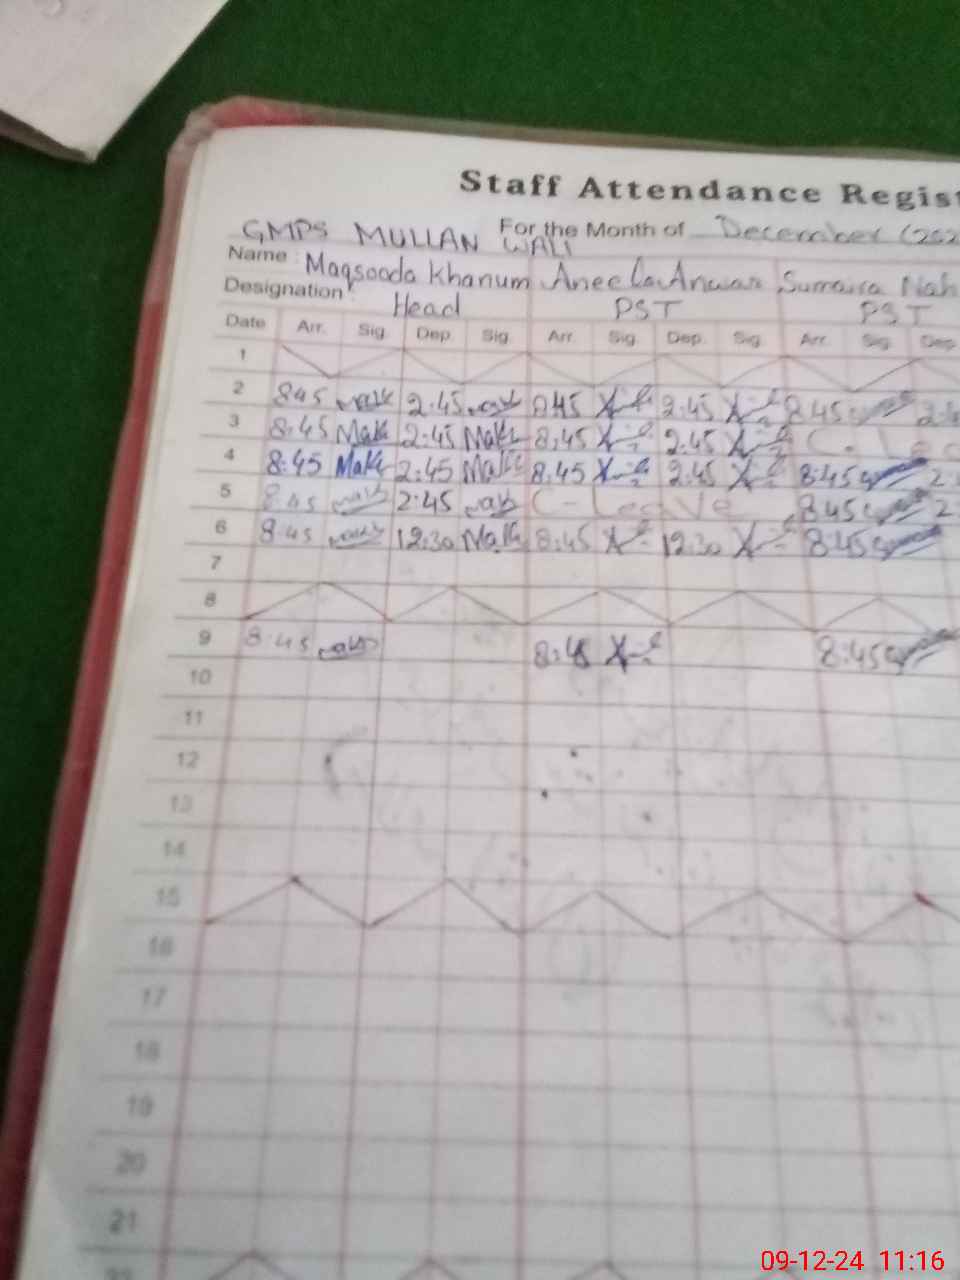 Staff Attendance Regist
GMPS MULLAN WALI For the Month of December (202
Name : Maqsooda Khanum Aneela Anwar Sumaira Nah
Designation : Head PST PST
Date Arr. Sig. Dep. Sig. Arr. Sig. Dep. Sig. Arr. Sig. Dep.
1
2 8:45 2:45 8:45 2:45 8:45
3 8:45 2:45 8:45 2:45 C-Lea
4 8:45 2:45 8:45 2:45 8:45
5 8:45 2:45 C-Leave 8:45
6 8:45 12:30 8:45 12:30 8:45
7
8
9 8:45 8:45 8:45
10
11
12
13
14
15
16
17
18
19
20
21
09-12-24 11:16